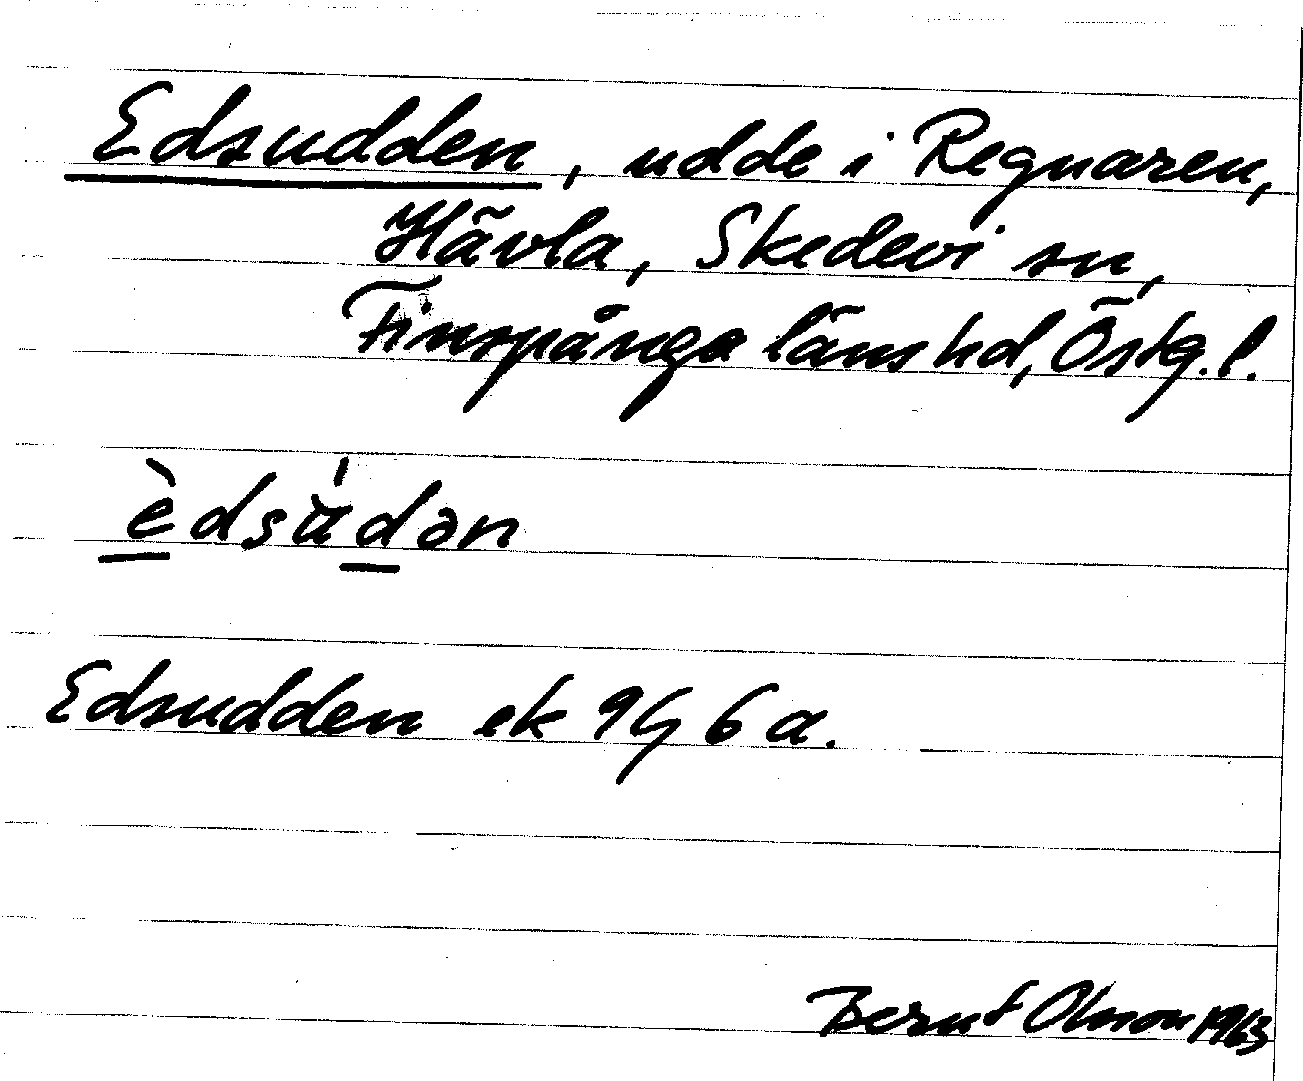 Edsudden, udde i Regnaren,
Hävla, Skedevi sn,
Finspånga läns hd, Östg. l.
èdsὰ̍dən
Edsudden ek 9G 6 a.
Bernt Olsson 1963